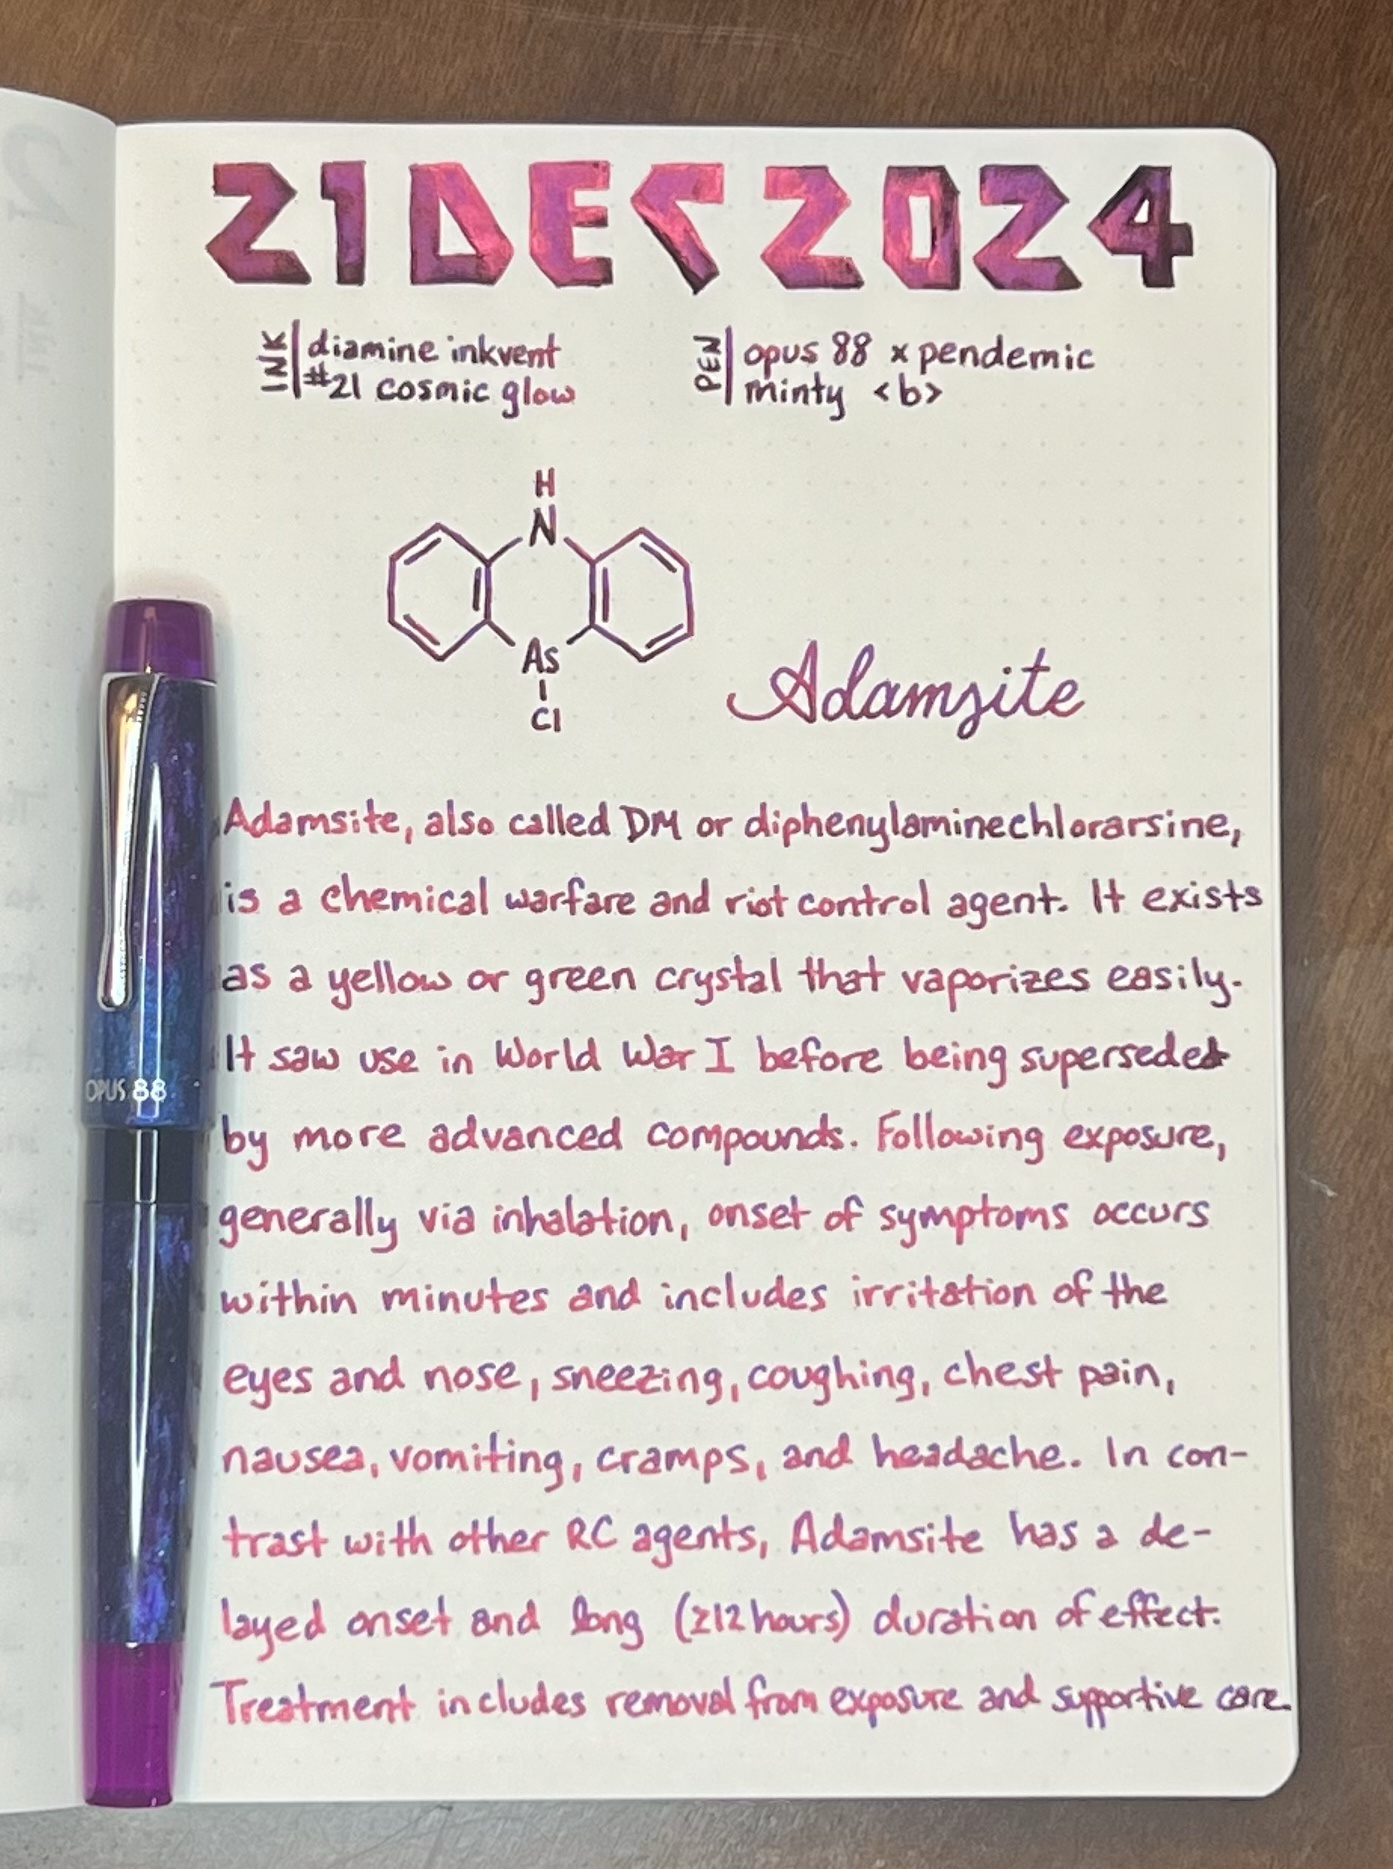 21 DEC 2024
INK diamine inkvent
#21 cosmic glow
PEN opus 88 x pendemic
minty <b>
H
N
As
Cl
Adamsite
Adamsite, also called DM or diphenylaminechlorarsine,
is a chemical warfare and riot control agent. It exists
as a yellow or green crystal that vaporizes easily.
It saw use in World War I before being superseded
by more advanced compounds. Following exposure,
generally via inhalation, onset of symptoms occurs
within minutes and includes irritation of the
eyes and nose, sneezing, coughing, chest pain,
nausea, vomiting, cramps, and headache. In con-
trast with other RC agents, Adamsite has a de-
layed onset and long (≥12 hours) duration of effect.
Treatment includes removal from exposure and supportive care.
OPUS 88